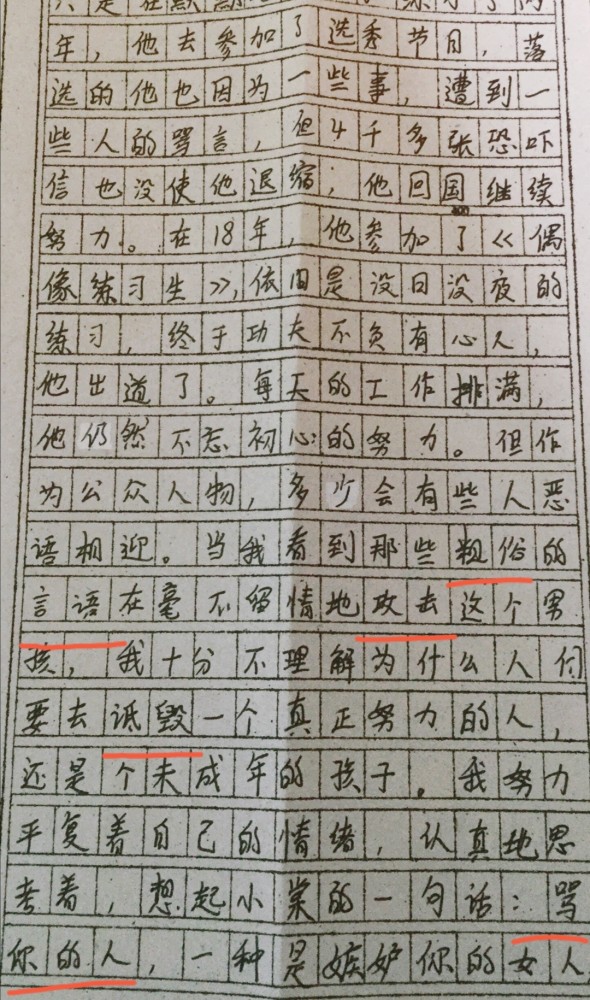 只是在默默
年，他去参加了选秀节目，落
选的他也因为一些事，遭到一
些人的骂言，但4千多张恐吓
信也没使他退缩；他回国继续
努力。在18年，他参加了《偶
像练习生》，依旧是没日没夜的
练习，终于功夫不负有心人，
他出道了。每天的工作排满，
他仍然不忘初心的努力。但作
为公众人物，多少会有些人恶
语相迎。当我看到那些粗俗的
言语在毫不留情地攻击这个男
孩，我十分不理解为什么人们
要去诋毁一个真正努力的人，
还是个未成年的孩子。我努力
平复着自己的情绪，认真地思
考着，想起小棠的一句话：骂
你的人，一种是嫉妒你的女人